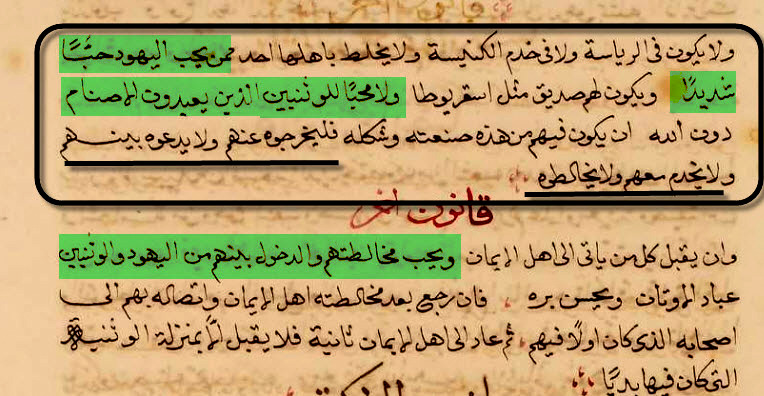 ولا يكون في الرياسة ولا في خدم الكنيسة ولا يخلط باهلها احد ممن يحب اليهود حبًّا
شديدًا ويكون لهم صديق مثل اسقريوطا ولا محبًّا للوثنيين الذين يعبدون الاصنام
دون الله ان يكون فيهم من هذه صنعته وشكله فليخرجوه عنهم ولا يدعوه بينهم
ولا يخدم معهم ولا يخالطوه
قانون اخر
وان يقبل كل من ياتي الى اهل الايمان ويحب مخالطتهم والدخول بينهم من اليهود والوثنيين
عباد الاوثان ويحسن بره فان رجع بعد مخالطته اهل الايمان واتصاله بهم الى
اصحابه الذي كان اولًا فيهم ثم عاد الى اهل الايمان ثانية فلا يقبل الّا بمنزلة الوثنية
التي كان فيها بديًّا